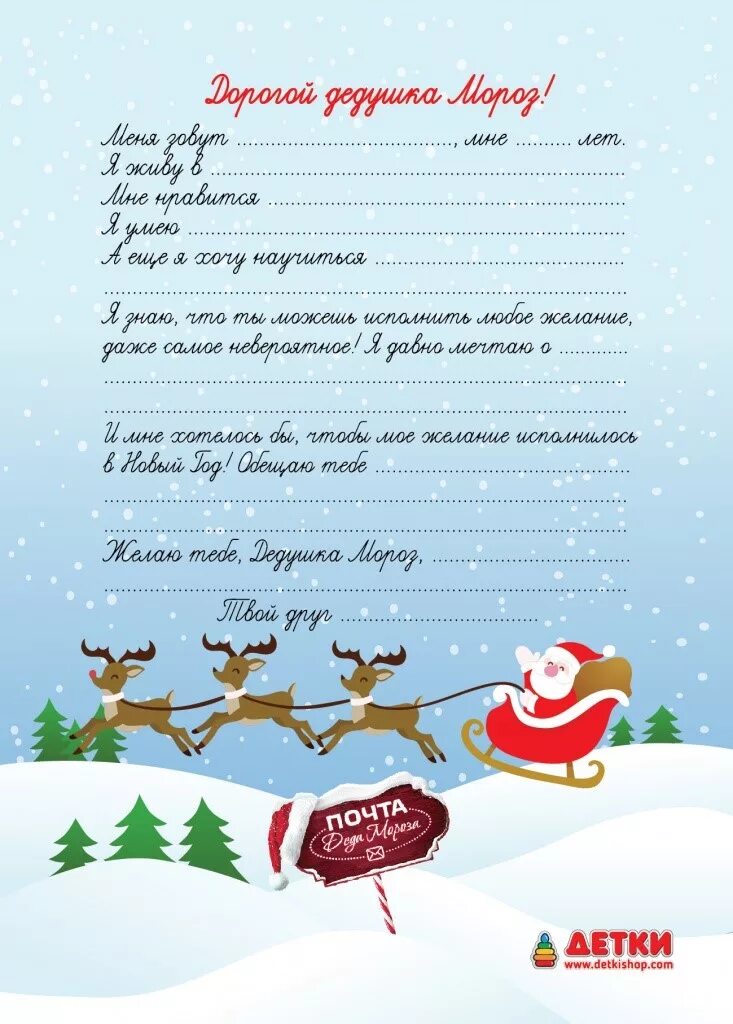 Дорогой дедушка Мороз!
Меня зовут ................................, мне .......... лет.
Я живу в ................................
Мне нравится ................................
Я умею ................................
А еще я хочу научиться ................................
................................
Я знаю, что ты можешь исполнить любое желание,
даже самое невероятное! Я давно мечтаю о .............
................................
................................
И мне хотелось бы, чтобы мое желание исполнилось
в Новый Год! Обещаю тебе ................................
................................
................................
Желаю тебе, Дедушка Мороз, ................................
................................
Твой друг ................................
ПОЧТА
Деда Мороза
ДЕТКИ
www.detkishop.com